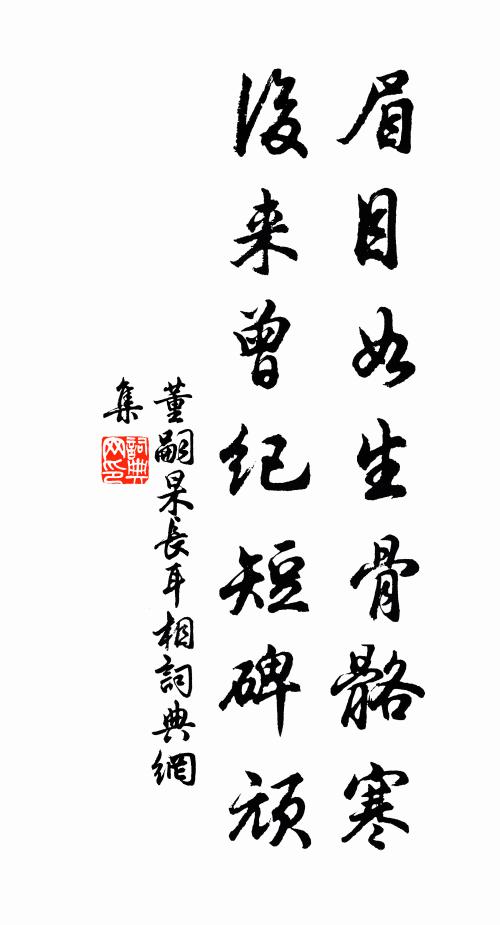 眉目如生骨骼寒
後来曾纪短碑頑
董嗣杲長耳相詞典網
集
詞典网印